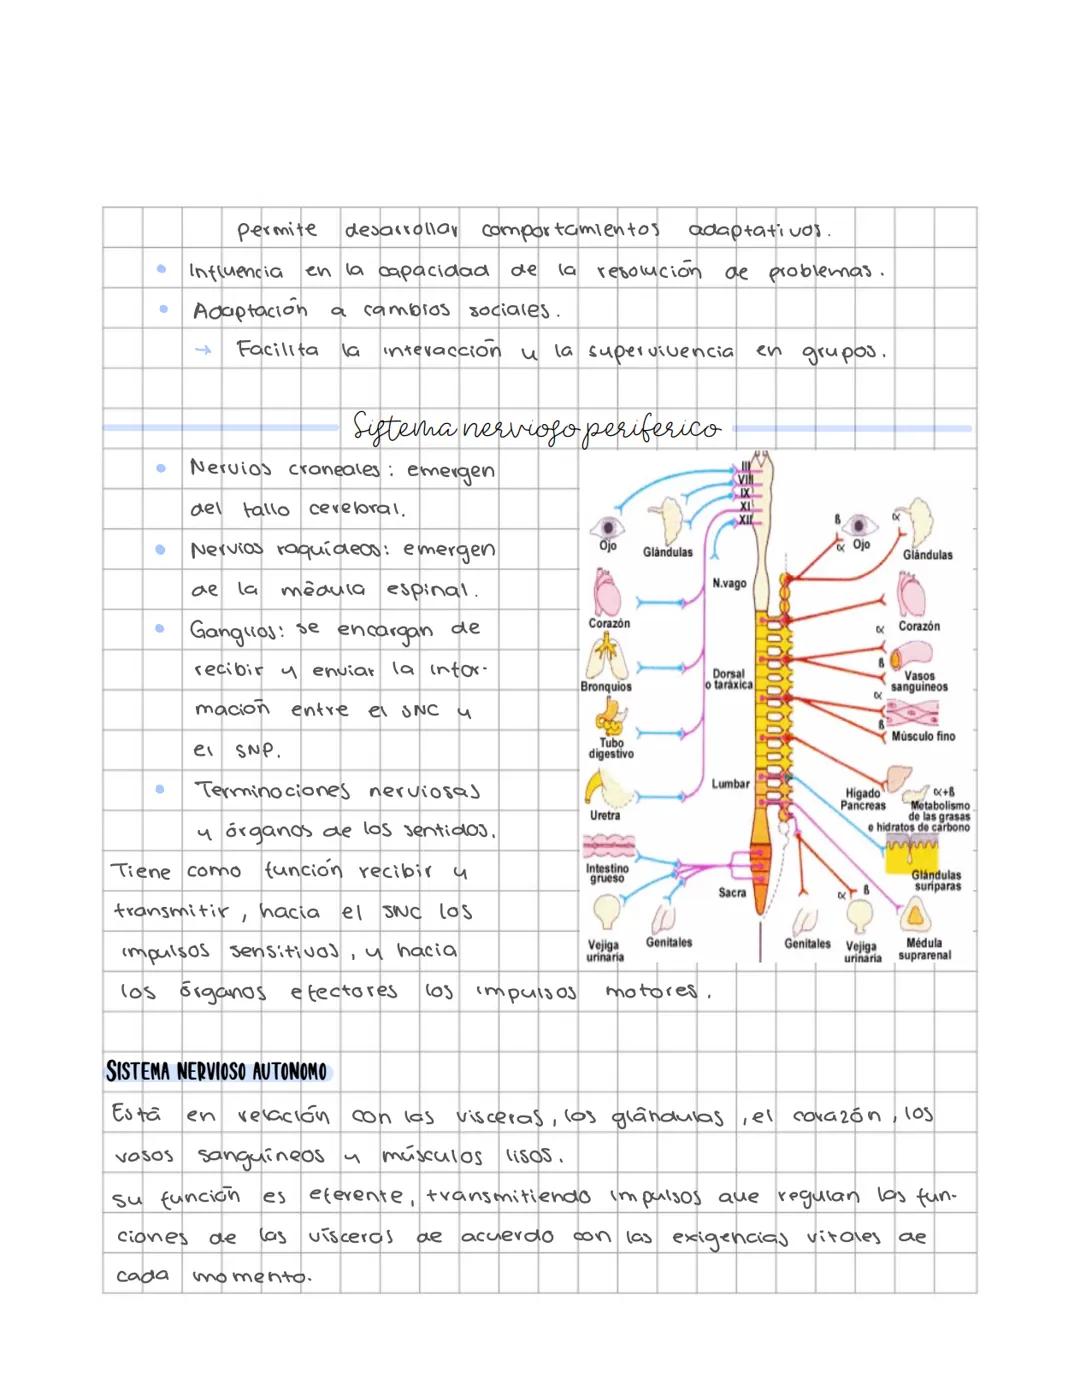 permite desarrollar comportamientos adaptativos.
• Influencia en la capacidad de la resolución de problemas.
• Adaptación a cambios sociales.
→ Facilita la interacción y la supervivencia en grupos.
Sistema nervioso periferico
• Nervios craneales: emergen
del tallo cerebral.
• Nervios raquídeos: emergen
de la médula espinal.
• Ganglios: se encargan de
recibir y enviar la infor-
mación entre el SNC y
el SNP.
• Terminaciones nerviosas
y órganos de los sentidos.
Tiene como función recibir y
transmitir, hacia el SNC los
impulsos sensitivos, y hacia
los órganos efectores los impulsos motores.
III
VII
IX
XI
XII
Ojo
Glándulas
N.vago
Corazón
Bronquios
Dorsal
o taráxica
Tubo
digestivo
Lumbar
Uretra
Intestino
grueso
Sacra
Vejiga
urinaria
Genitales
ß
α
Ojo
α
Glándulas
Corazón
α
ß
Vasos
sanguineos
α
ß
Músculo fino
Higado
Pancreas
α+ß
Metabolismo
de las grasas
e hidratos de carbono
Glándulas
suriparas
α
ß
Genitales
Vejiga
urinaria
Médula
suprarenal
SISTEMA NERVIOSO AUTONOMO
Está en relación con las visceras, los glándulas, el corazón, los
vasos sanguíneos y músculos lisos.
su función es eferente, transmitiendo impulsos que regulan las fun-
ciones de las vísceras de acuerdo con las exigencias vitales de
cada momento.